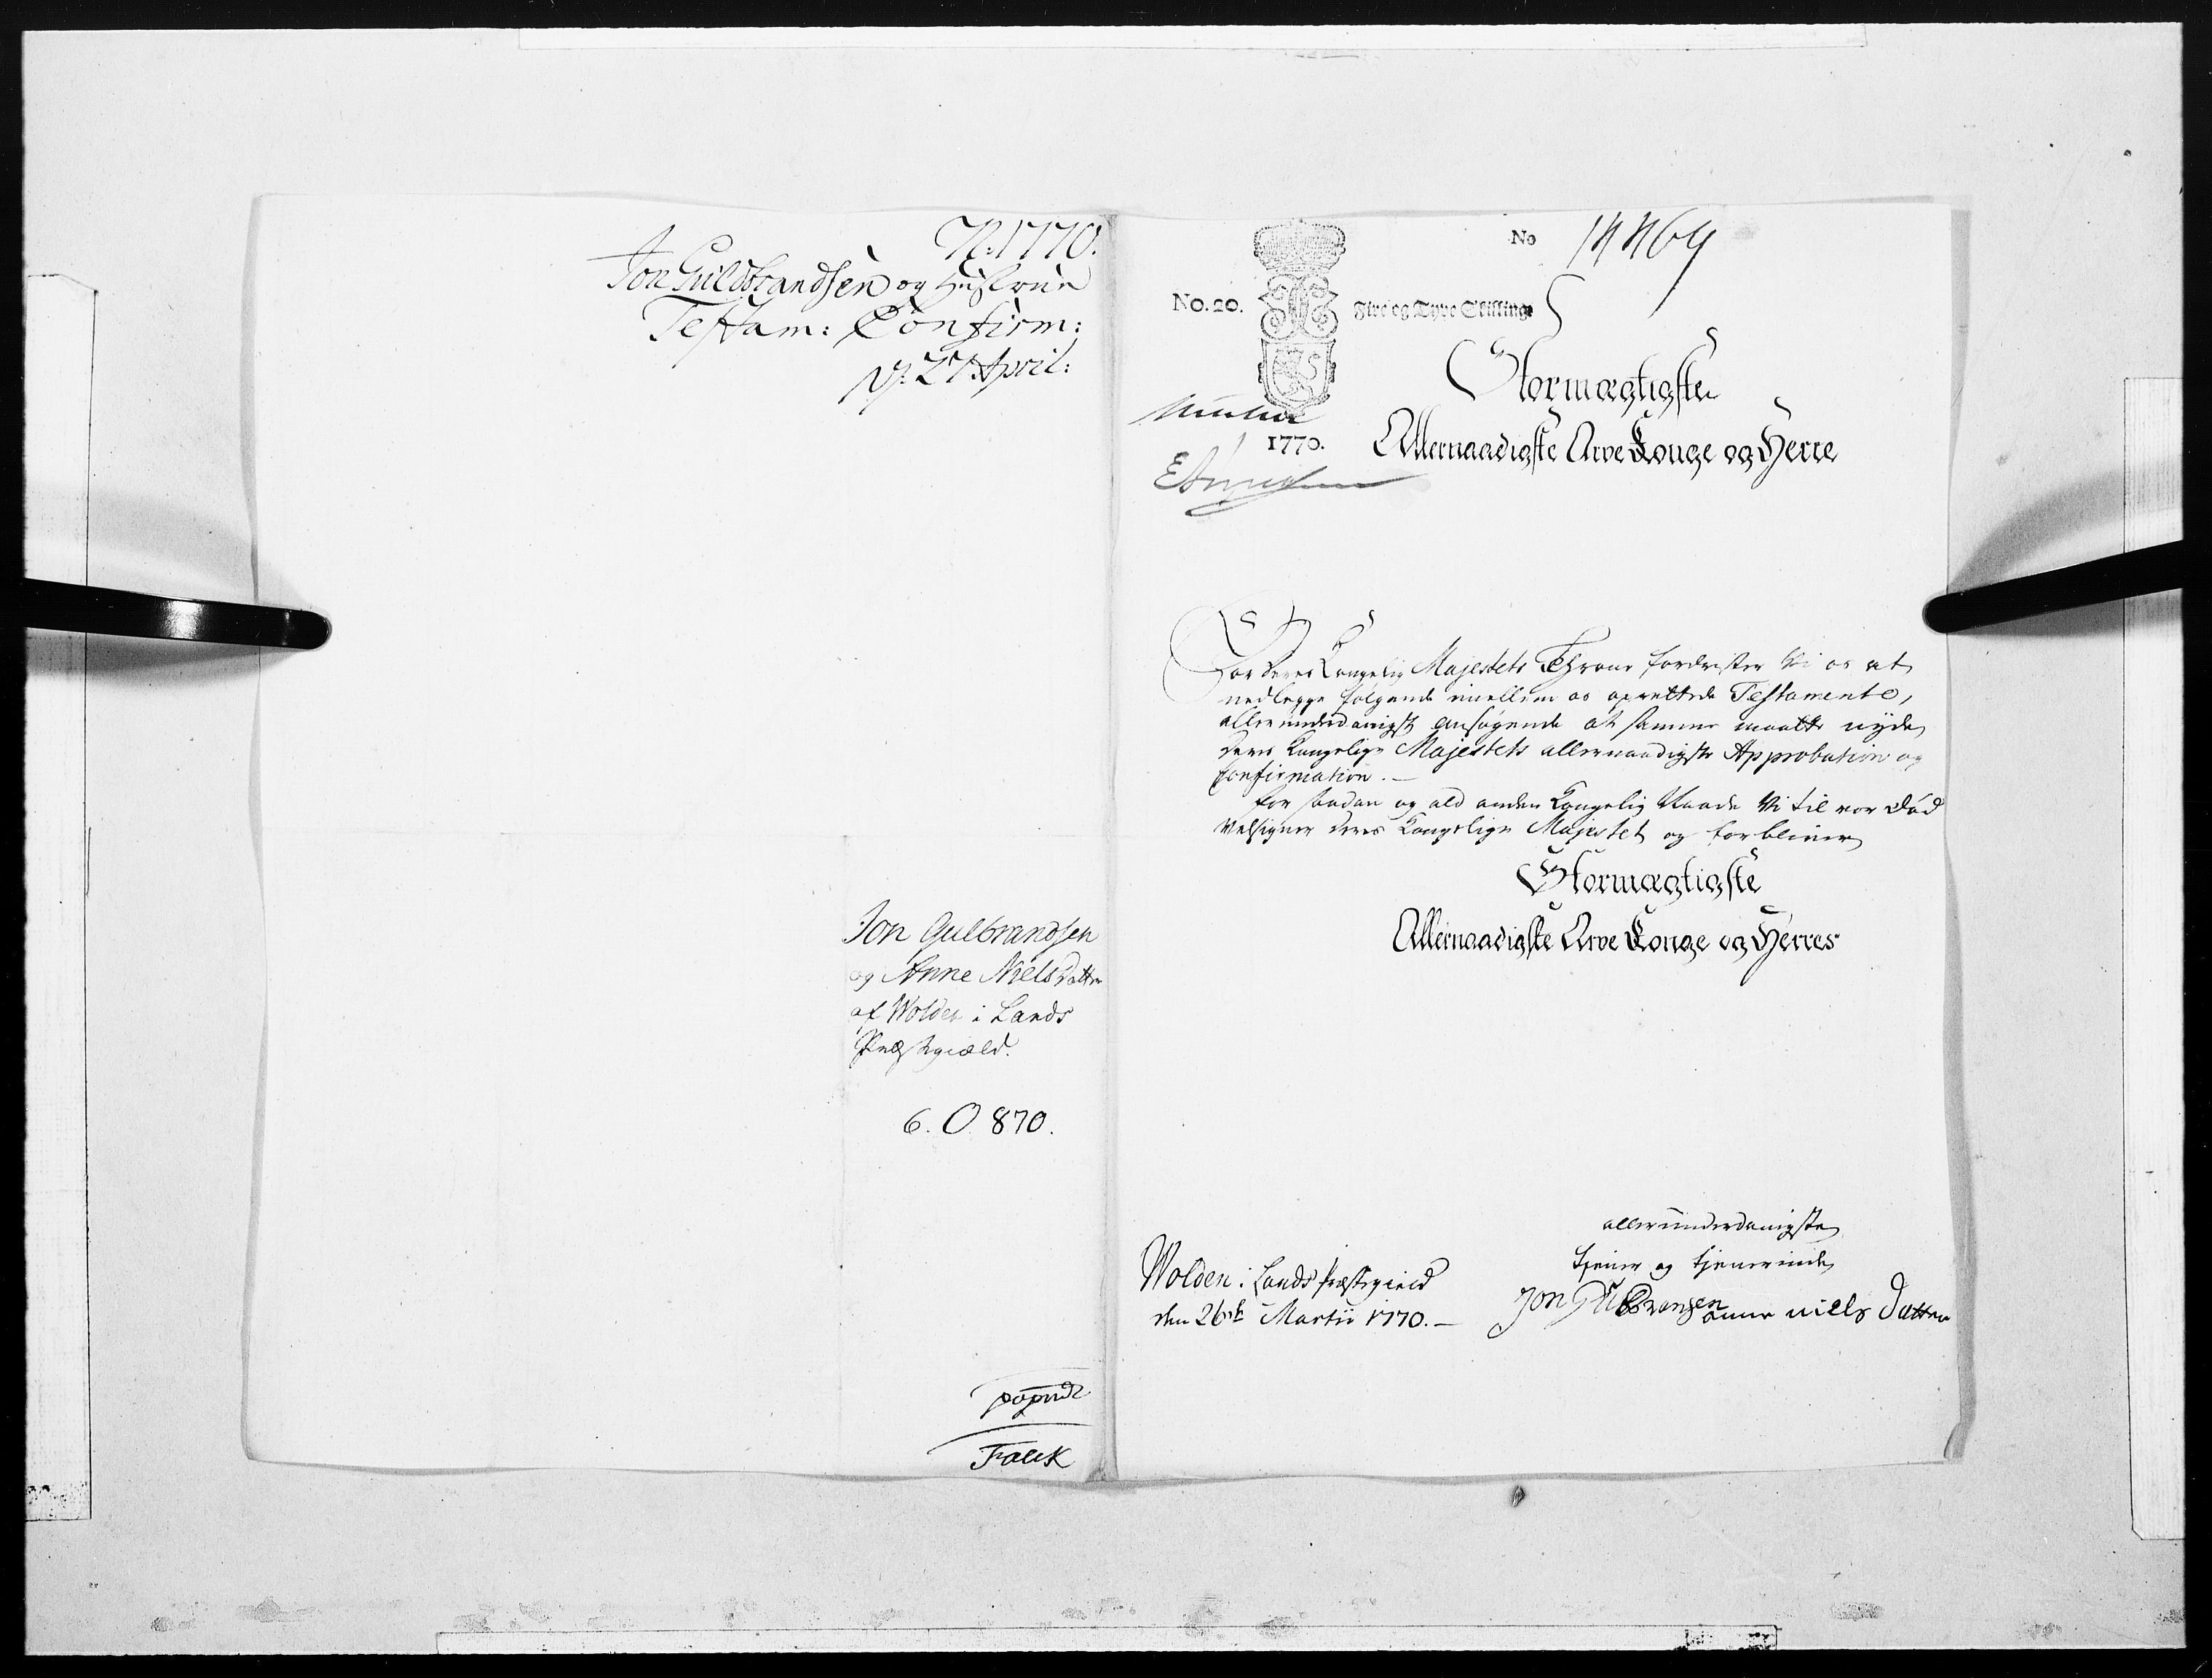 N: 1770.
Jon Guldbrandsen og Hustrue
Testam: Confirm:
D: 27 April:
Jon Gulbrandsen
og Anne Nielsdatter
af Wolden i Lands
Præstegiæld.
6. O 870.
Falck
No 14469
No. 20.
Fire og Tyve Skilling
1770.
Stormægtigste
Allernaadigste Arve Konge og Herre
For Deres Kongelig Majestets Throne fordrister Vi os at
nedlegge følgende imellem os oprettede Testamente,
allerunderdanigst ansøgende at samme maatte nyde
Deres Kongelige Majestets allernaadigste Approbation og
Confirmation. —
For saadan og ald anden Kongelig Naade Vi til vor Død
Velsigner Deres Kongelige Majestet og forbliver
Stormægtigste
Allernaadigste Arve Konge og Herres
allerunderdanigste
tjener og tjenerinde
Wolden i Lands Præstegield
den 26de Martii 1770. —
Jon Gulbransen
Anne niels Datter